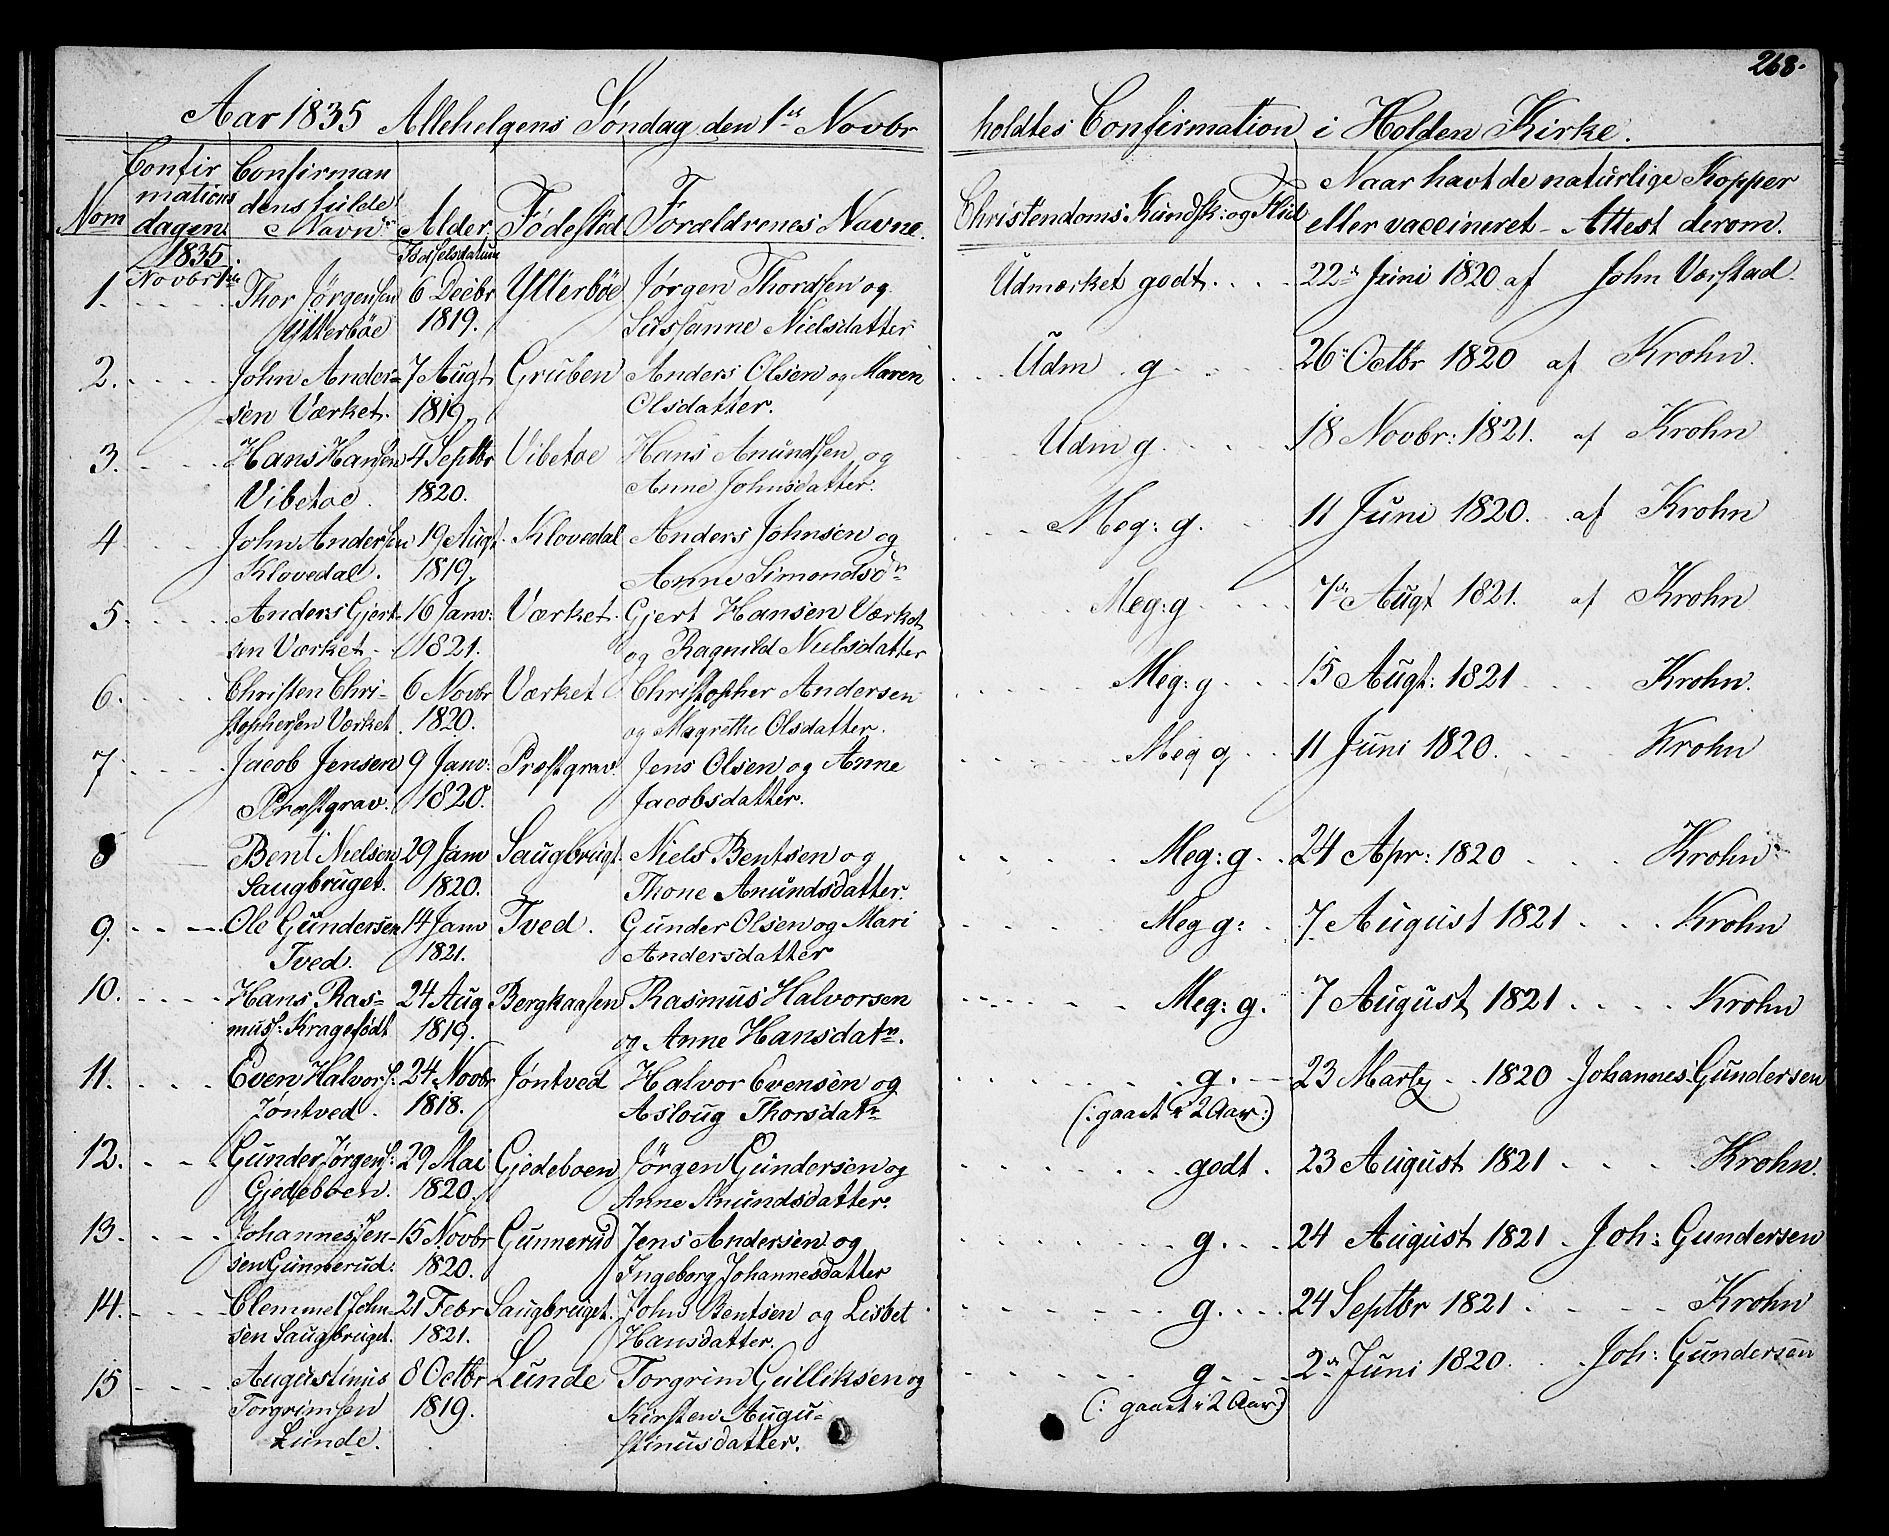 268.
Aar 1835 Allehelgens Søndag den 1ste Novbr holdtes Confirmation i Holden Kirke.
Nom Confirmationsdagen. Confirmandens fulde Navn Alder Fødested Forældrenes Navne. Christendoms Kundsk: og Flid Naar havt de naturlige Kopper
eller vaccineret - Attest derom.
1835. Fødselsdatum
1. Novbr 1ste Thor Jørgensen 6 Decbr Ytterbøe Jørgen Thordsen og Udmærket godt. 22de Juni 1820 af John Værstad.
Ytterbøe 1819. Sussanne Nielsdatter
2. John Ander= 7 Augt Gruben Anders Olsen og Maren Udm g 26de Octbr 1820 af Krohn.
sen Værket. 1819. Olsdatter.
3. Hans Hansen 4 Septbr Vibetoe Hans Anundsen og Udm g. 18 Novbr: 1821. af Krohn
Vibetoe. 1820. Anne Johnsdatter.
4 John Andersen 19 Augt. Klovedal Anders Johnsen og Meg: g. 11 Juni 1820. af Krohn
Klovedal. 1819. Anne Simondsdr
5. Anders Gjert- 16 Janv: Værket Gjert Hansen Værket Meg: g 7de Augt 1821. af Krohn
sen Værket - 1821. og Ragnild Nielsdatter
6. Christen Chri- 6 Novbr Værket Christopher Andersen Meg: g 15 Augt: 1821 Krohn.
stophersen Værket. 1820. og Magrethe Olsdatter.
7 Jacob Jensen 9 Janv: Præstgrav Jens Olsen og Anne Meg g 11 Juni 1820. Krohn
Præstgrav. 1820. Jacobsdatter.
8 Bent Nielsen 29 Janv Saugbrugt. Niels Bentsen og Meg: g 24 Apr: 1820 Krohn
Saugbruget. 1820. Thone Anundsdatter.
9. Ole Gundersen 14 Janv Tved. Gunder Olsen og Mari Meg g: 7 August 1821 Krohn
Tved. 1821. Andersdatter
10. Hans Ras= 24 Aug Bergkaasen Rasmus Halvorsen Meg: g. 7 August 1821 Krohn
muss: Kragefødt 1819. og Anne Hansdatr.
11. Even Halvors: 24 Novbr Jøntved Halvor Evensen og g. 23 Marty 1820 Johannes Gundersen
Jøntved. 1818. Asloug Thorsdatr (: gaaet i 2 Aar :)
12. Gunder Jørgens: 29 Mai Gjedeboen Jørgen Gundersen og godt. 23 August 1821 Krohn.
Gjedeboen. 1820. Anne Anundsdatter.
13. Johannes Jen- 15 Novbr Gunnerud Jens Andersen og g. 24 August 1821 Joh: Gundersen
sen Gunnerud: 1820. Ingeborg Johannesdatter
14. Clemmet John- 21 Febr Saugbruget. John Bentsen og Lisbet g. 24 Septbr 1821 Krohn
sen Saugbruget. 1821. Hansdatter.
15 Augustinus 8 Octbr Lunde Torgrim Gulliksen og g 2de Juni 1820. Joh: Gundersen
Torgrimsen 1819. Kirsten Augu= (: gaaet i 2 Aar :)
Lunde. stinusdatter.